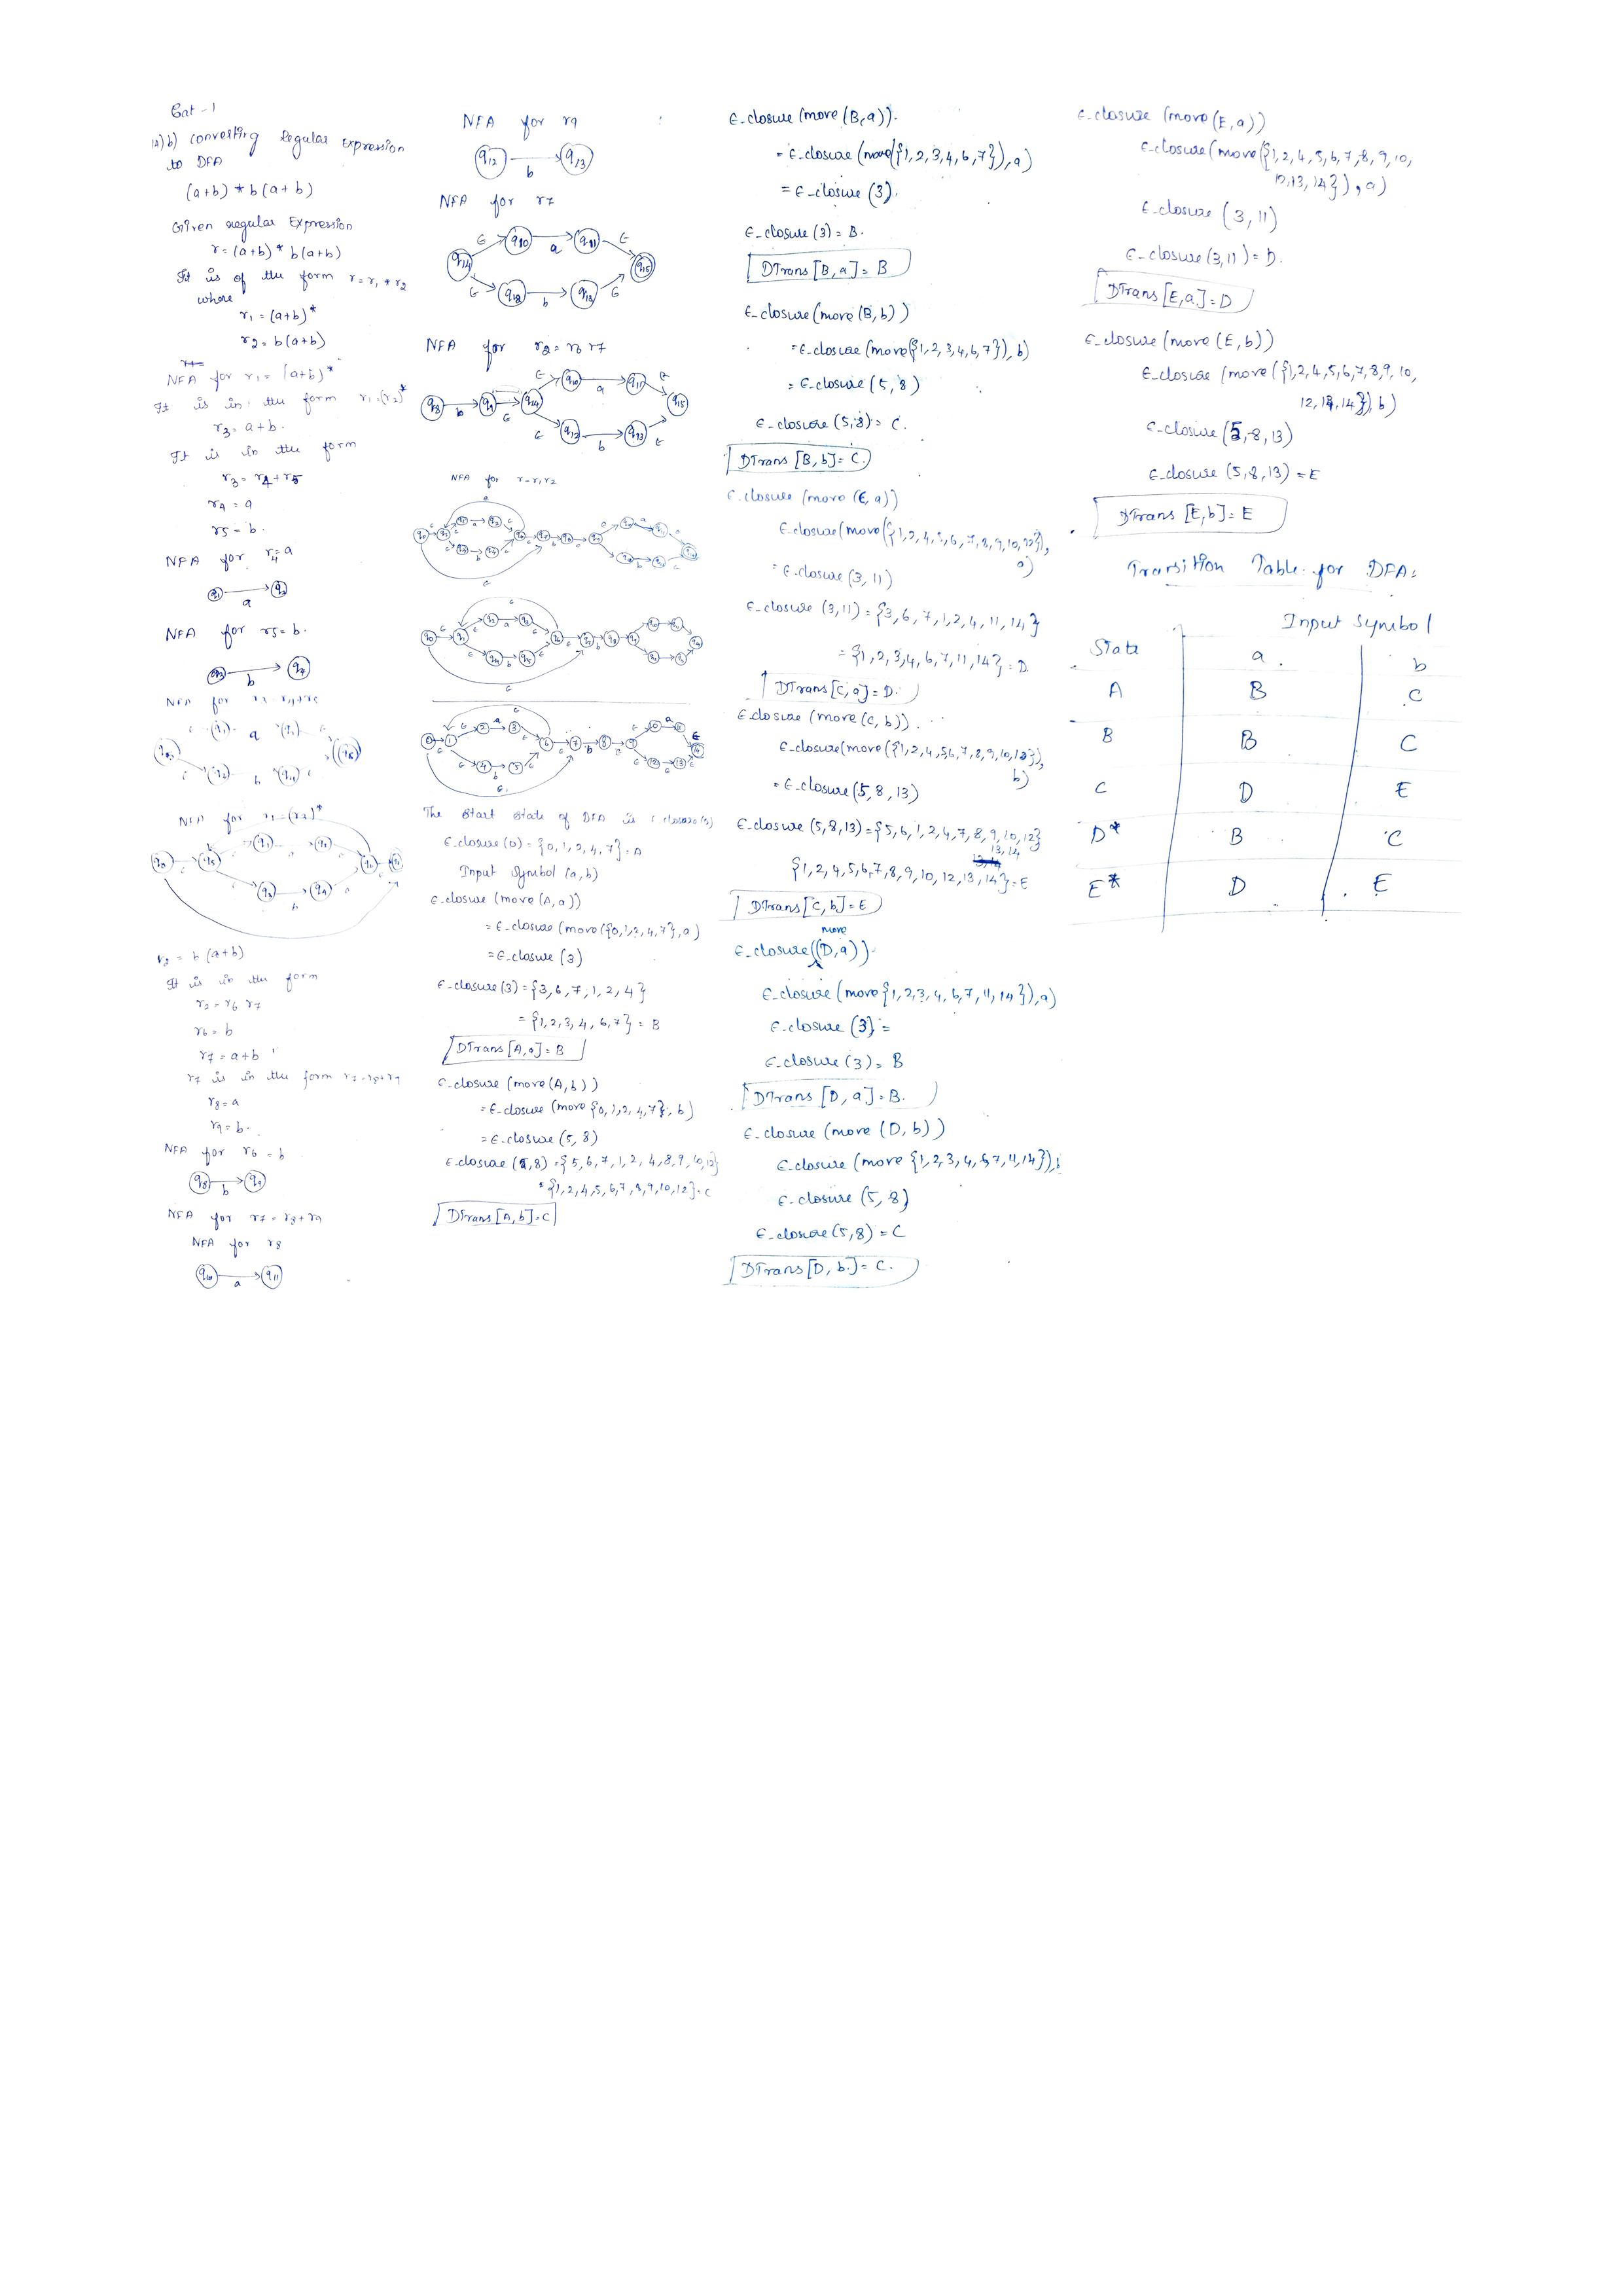 Cat - 1
12) b) Converting Regular Expression
to DFA
(a+b)*b(a+b)
Given regular Expression
r=(a+b)* b(a+b)
It is of the form r=r1+r2
where
r1=(a+b)*
r2=b(a+b)
NFA for r1=(a+b)*
It is in the form r1=(r3)*
r3=a+b.
It is in the form
r3=r4+r5
r4=a
r5=b.
NFA for r4=a
q1 a q2
NFA for r5=b.
q3 b q4
NFA for r3=r4+r5
q5 ε q1 a q2 ε q6
ε q3 b q4 ε
NFA for r1=(r3)*
r2=b(a+b)
It is in the form
r2=r6 r7
r6=b
r7=a+b
r7 is in the form r7=r8+r9
r8=a
r9=b.
NFA for r6=b
q8 b q9
NFA for r7=r8+r9
NFA for r8
q10 a q11
NFA for r9
q12 b q13
NFA for r7
q14 ε q10 a q11 ε q15
ε q12 b q13 ε
NFA for r2=r6 r7
q8 b q9 ε q14 ε q10 a q11 ε q15
ε q12 b q13 ε
NFA for r=r1r2
The Start state of DFA is ε closure(0)
ε-closure(0)={0,1,2,4,7}=A
Input Symbol (a,b)
ε-closure (move(A,a))
=ε-closure(move({0,1,2,4,7},a)
=ε-closure (3)
ε-closure(3)={3,6,7,1,2,4}
={1,2,3,4,6,7}=B
DTrans[A,a]=B
ε-closure (move(A,b))
=ε-closure (move{0,1,2,4,7},b)
=ε-closure (5,8)
ε-closure (5,8)={5,6,7,1,2,4,8,9,10,12}
={1,2,4,5,6,7,8,9,10,12}=C
DTrans[A,b]=C
ε-closure (move(B,a)).
=ε-closure (move({1,2,3,4,6,7}),a)
=ε-closure (3).
ε-closure(3)=B.
DTrans[B,a]=B
ε-closure(move(B,b))
=ε-closure (move({1,2,3,4,6,7}),b)
=ε-closure (5,8)
ε-closure (5,8)=C.
DTrans[B,b]=C.
ε-closure (move (C,a))
ε-closure(move({1,2,4,5,6,7,8,9,10,12}),
a)
=ε-closure (3,11)
ε-closure (3,11)={3,6,7,1,2,4,11,14}
={1,2,3,4,6,7,11,14}=D.
DTrans[C,a]=D.
ε-closure (move(C,b)).
ε-closure(move({1,2,4,5,6,7,8,9,10,12}),
b)
=ε-closure(5,8,13)
ε-closure (5,8,13)={5,6,1,2,4,7,8,9,10,12}
13,14
{1,2,4,5,6,7,8,9,10,12,13,14}=E
DTrans[C,b]=E
move
ε-closure((D,a)).
ε-closure(move{1,2,3,4,6,7,11,14}),a)
ε-closure (3)=
ε-closure(3)=B
DTrans[D,a]=B.
ε-closure (move (D,b))
ε-closure (move {1,2,3,4,6,7,11,14}),b
ε-closure (5,8)
ε-closure(5,8)=C
DTrans[D,b]=C.
ε-closure (move(E,a))
ε-closure(move({1,2,4,5,6,7,8,9,10,
12,13,14}),a)
ε-closure (3,11)
ε-closure(3,11)=D.
DTrans[E,a]=D
ε-closure(move (E,b))
ε-closure (move({1,2,4,5,6,7,8,9,10,
12,13,14}),b)
ε-closure(5,8,13)
ε-closure (5,8,13)=E
DTrans[E,b]=E
Transition Table for DFA:
Input Symbol
State a b
A B C
B B C
C D E
D* B C
E* D E